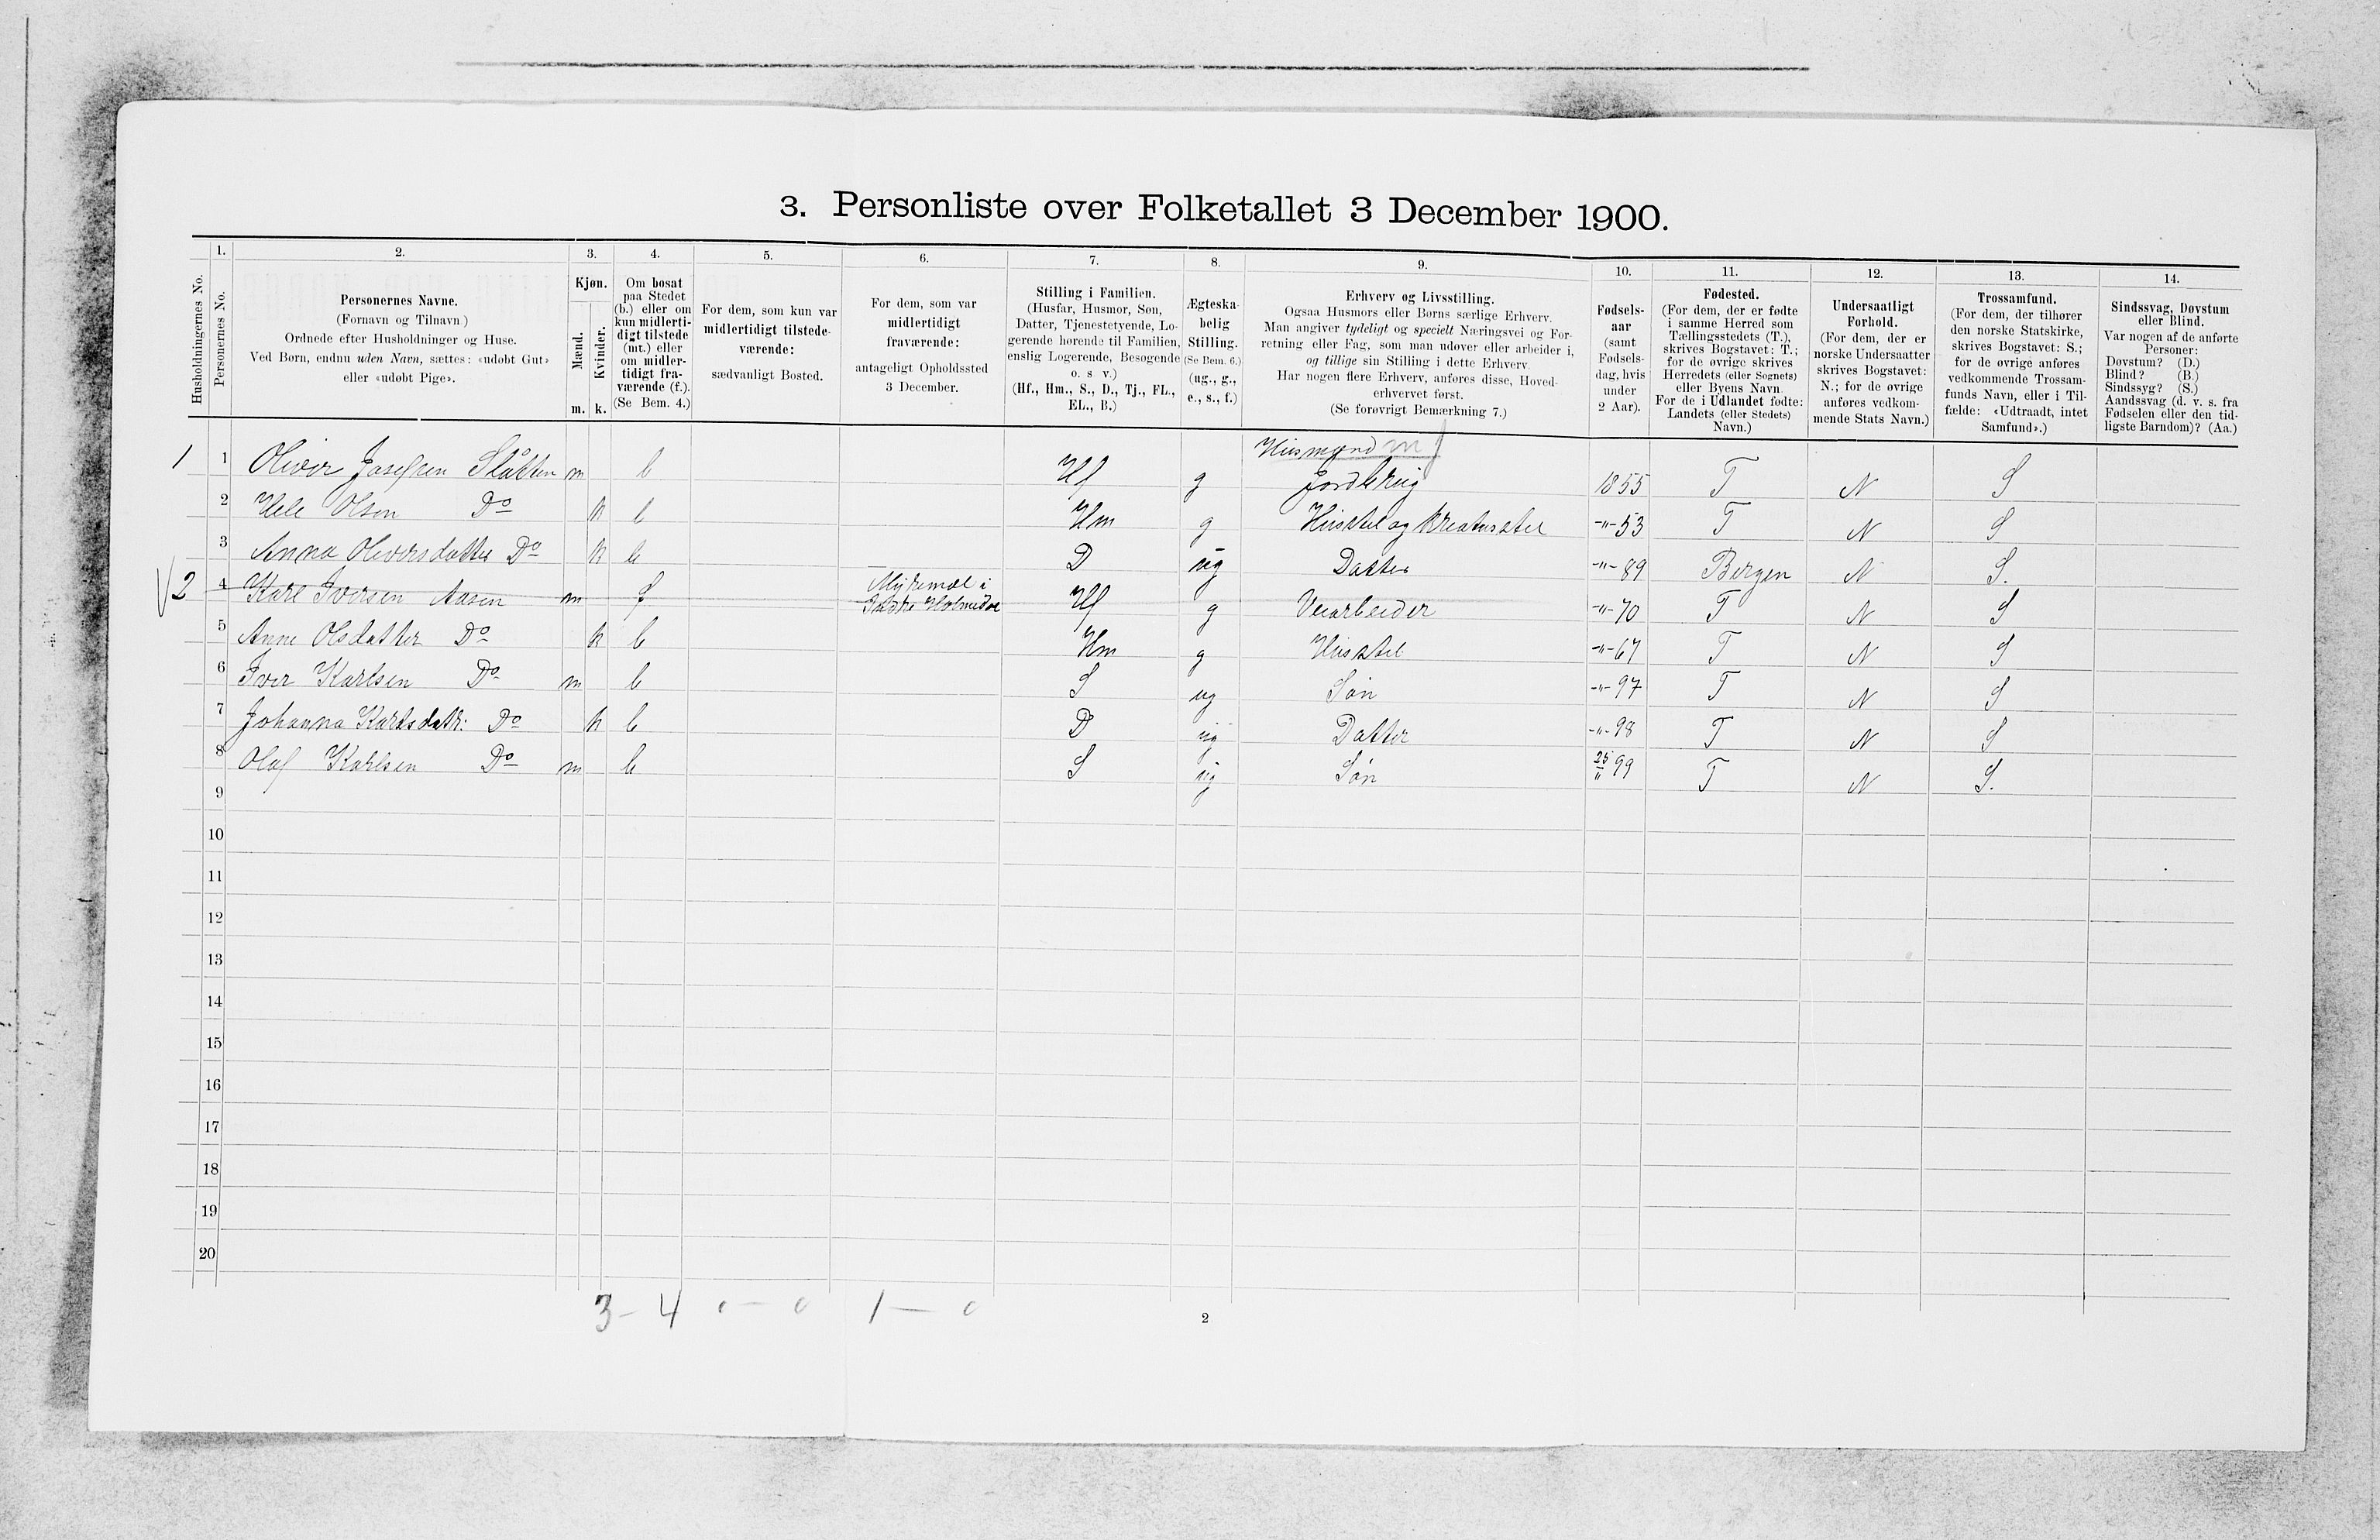 3. Personliste over Folketallet 3 December 1900.
Husholdningernes No.
1.
Personernes No.
2.
Personernes Navne.
(Fornavn og Tilnavn)
Ordnede efter Husholdninger og Huse.
Ved Børn, endnu uden Navn, sættes: «udøbt Gut»
eller «udøbt Pige».
3.
Kjøn.
Mænd.
Kvinder.
m. k.
4.
Om bosat
paa Stedet
(b.) eller om
kun midlerti-
digt tilstede
(mt.) eller
om midler-
tidigt fra-
værende (f.).
(Se Bem. 4.)
5.
For dem, som kun var
midlertidigt tilstede-
værende:
sædvanligt Bosted.
6.
For dem, som var
midlertidigt
fraværende:
antageligt Opholdssted
3 December.
7.
Stilling i Familien.
(Husfar, Husmor, Søn,
Datter, Tjenestetyende, Lo-
gerende hørende til Familien,
enslig Logerende, Besøgende
o. s v.)
(Hf., Hm., S., D., Tj., FL.,
EL., B.)
8.
Ægteska-
belig
Stilling.
(Se Bem. 6.)
(ug., g.,
e., s., f.)
9.
Erhverv og Livsstilling.
Ogsaa Husmors eller Børns særlige Erhverv.
Man angiver tydeligt og specielt Næringsvei og For-
retning eller Fag, som man udøver eller arbeider i,
og tillige sin Stilling i dette Erhverv.
Har nogen flere Erhverv, anføres disse, Hoved-
erhvervet først.
(Se forøvrigt Bemærkning 7.)
10.
Fødsels-
aar
(samt
Fødsels-
dag, hvis
under
2 Aar).
11.
Fødested.
(For dem, der er fødte
i samme Herred som
Tællingsstedets (T.),
skrives Bogstavet: T.;
for de øvrige skrives
Herredets (eller Sognets)
eller Byens Navn.
For de i Udlandet fødte:
Landets (eller Stedets)
Navn.)
12.
Undersaatligt
Forhold.
(For dem, der er
norske Undersaatter
skrives Bogstavet:
N.; for de øvrige
anføres vedkom-
mende Stats Navn.)
13.
Trossamfund.
(For dem, der tilhører
den norske Statskirke,
skrives Bogstavet: S.;
for de øvrige anføres
vedkommende Trossam-
funds Navn, eller i Til-
fælde: «Udtraadt, intet
Samfund».)
14.
Sindssvag, Døvstum
eller Blind.
Var nogen af de anførte
Personer:
Døvstum? (D.)
Blind? (B.)
Sindssyg? (S.)
Aandssvag (d. v. s. fra
Fødselen eller den tid-
ligste Barndom)? (Aa.)
1 1 Oliver Josefsen Slåtten m b Hf g Husmand m Jordbrug 1855 T N S
2 Olsen Do k b Hm g Husstel og Kreaturstel -"-53 T N S
3 Anna Oliversdatter Do k b D ug Datter -"-89 Bergen N S.
2 4 Karl Iversen Aasen m f Myremæl i Hf g Veiarbeider -"-70 T N S
5 Anne Olsdatter Do k b Hm g Husstel -"-67 T N S
6 Iver Karlsen Do m b S ug Søn -"-97 T N S
7 Johanna Karlsdatr: Do k b D ug Datter -"-98 T N S
8 Olaf Karlsen Do m b S ug Søn 25/11 99 T N S.
9
10
11
12
13
14
15
16
17
18
19
20
3-4 0-0 1-0
2